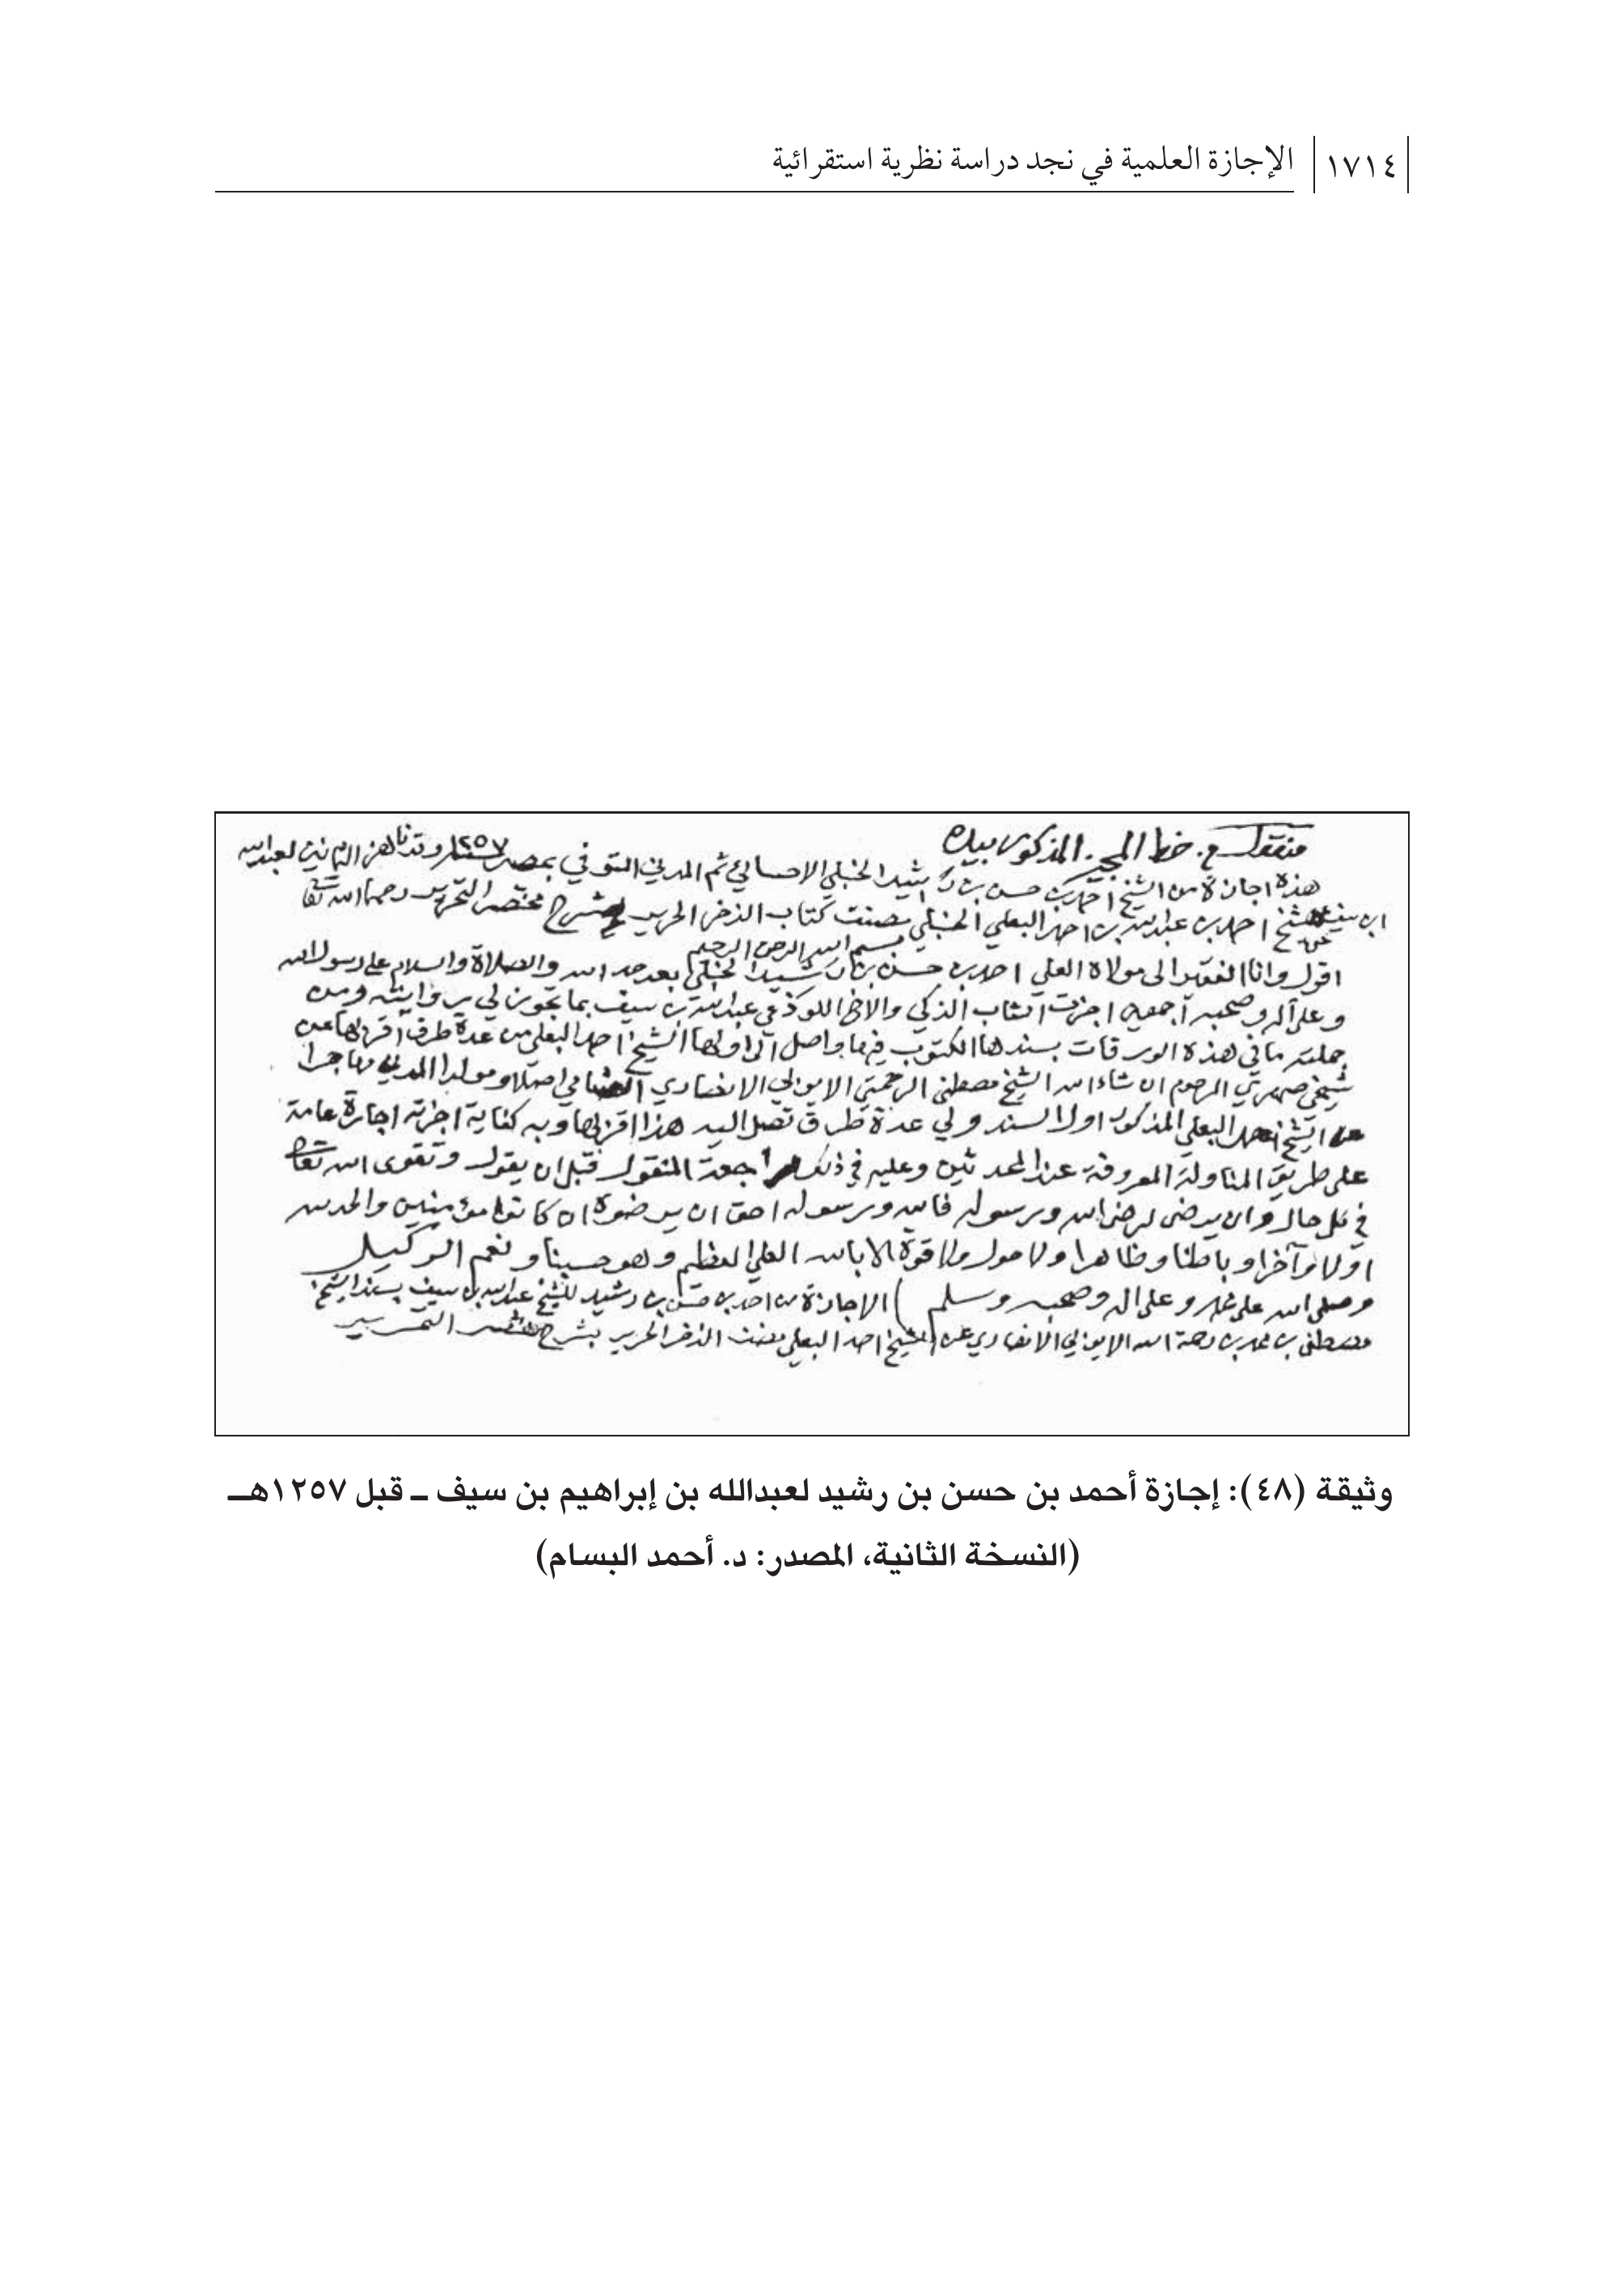 ١٧١٤ الإجازة العلمية في نجد دراسة نظرية استقرائية
منقول من خط المجيز المذكور بيده
هذه اجازة من الشيخ احمد بن حسن بن رشيد الحنبلي الاحسائي ثم المدني المتوفي بمصر سنة ١٢٥٧ وقد ناهز الثمانين لعبدالله
ابن سيف عن الشيخ احمد بن عبدالله بن احمد البعلي الحنبلي مصنف كتاب الذخر الحرير شرح مختصر التحرير رحمهما الله تعالى
بسم الله الرحمن الرحيم
اقول وانا الفقير الى مولاه العلي احمد بن حسن بن رشيد الحنبلي بعد حمد الله والصلاة والسلام على رسول الله
وعلى آله وصحبه أجمعين اجزت الشاب الذكي والاخ اللوذعي عبدالله بن سيف بما يجوز لي روايته ومن
جملته ما في هذه الورقات بسندها المكتوب فيها واصل الى اولها الشيخ احمد البعلي من عدة طرق أقربها عن
شيخي صهري المرحوم ان شاء الله الشيخ مصطفى الرحمتي الايوبي الانصاري الشامي اصلا ومولدا المدني مهاجرا
عن الشيخ احمد البعلي المذكور اولا السند ولي عدة طرق تصل اليه هذا اقربها وبه كفاية اجزته اجازة عامة
على طريق المناولة المعروفة عند المحدثين وعليه في ذلك مراجعة المنقول قبل ان يقول وتقوى الله تعالى
في كل حال وان يرضى لرضى الله ورسوله فالله ورسوله احق ان يرضوه ان كانوا مؤمنين والحمد لله
اولا وآخرا وباطنا وظاهرا ولا حول ولا قوة الا بالله العلي العظيم وهو حسبنا ونعم الوكيل
وصلى الله على محمد وعلى اله وصحبه وسلم ) الاجازة من احمد بن حسن بن رشيد للشيخ عبدالله بن سيف بسند الشيخ
مصطفى بن محمد بن رحمة الله الايوبي الانصاري عن الشيخ احمد البعلي مصنف الذخر الحرير بشرح مختصر التحرير
وثيقة (٤٨): إجازة أحمد بن حسن بن رشيد لعبدالله بن إبراهيم بن سيف ـ قبل ١٢٥٧هـ
(النسخة الثانية، المصدر: د. أحمد البسام)